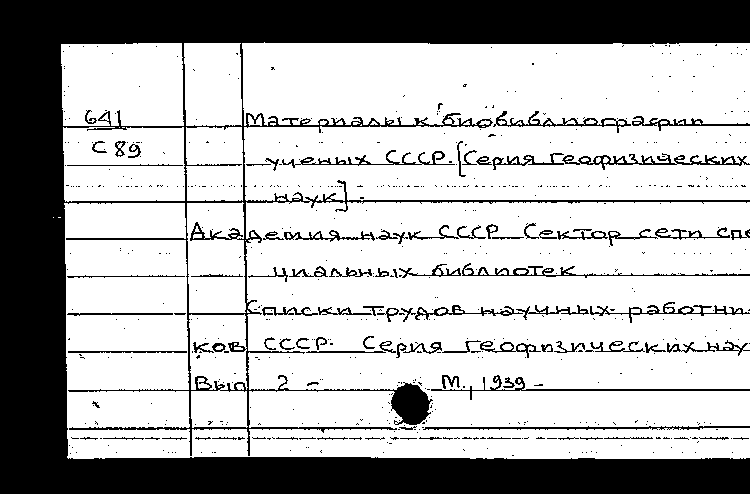 641
С 89
Материалы к биобиблиографии
ученых СССР. [Серия геофизических
наук].
Академия наук СССР Сектор сети спе
циальных библиотек
Списки трудов научных работни
ков СССР. Серия геофизических нау
Вып 2 - М., 1939 -